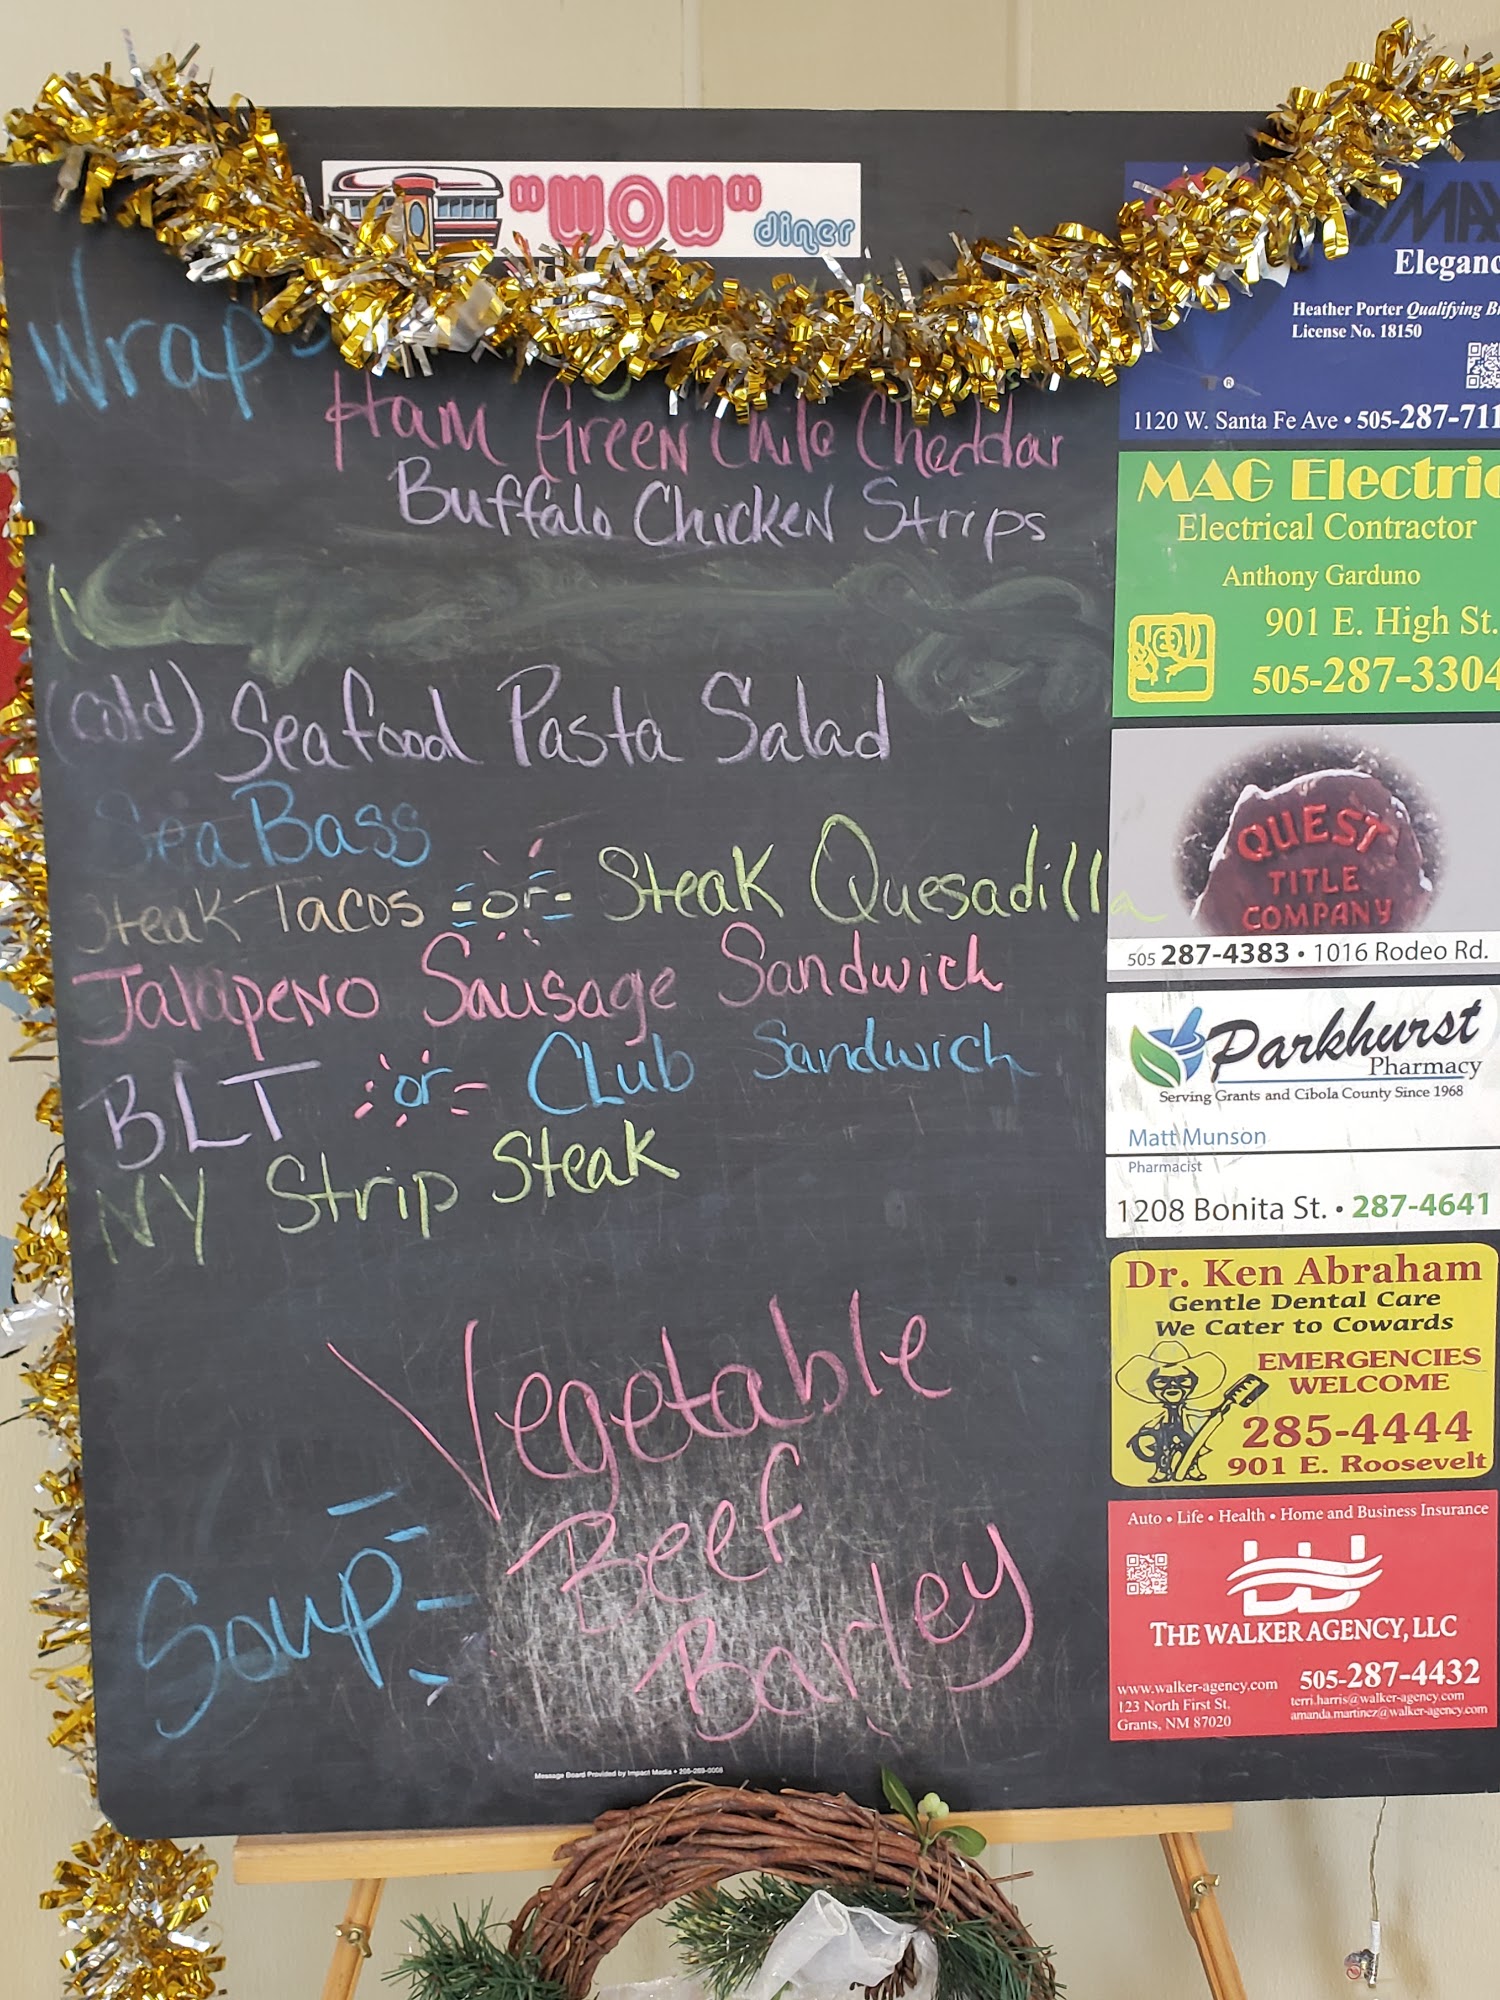 "WOW" diner
Wraps
Ham Green Chile Cheddar
Buffalo Chicken Strips
(cold) Seafood Pasta Salad
Sea Bass
Steak Tacos -or- Steak Quesadilla
Jalapeno Sausage Sandwich
BLT or CLub Sandwich
NY Strip Steak
Vegetable
Beef
Barley
Soup
Message Board Provided by Impact Media •
Heather Porter Qualifying
License No. 18150
1120 W. Santa Fe Ave • 505-287-711
MAG Electric
Electrical Contractor
Anthony Garduno
901 E. High St.
505-287-3304
QUEST
TITLE
COMPANY
505 287-4383 • 1016 Rodeo Rd.
Parkhurst
Pharmacy
Serving Grants and Cibola County Since 1968
Matt Munson
Pharmacist
1208 Bonita St. • 287-4641
Dr. Ken Abraham
Gentle Dental Care
We Cater to Cowards
EMERGENCIES
WELCOME
285-4444
901 E. Roosevelt
Auto • Life • Health • Home and Business Insurance
THE WALKER AGENCY, LLC
505-287-4432
www.walker-agency.com
terri.harris@walker-agency.com
123 North First St.
amanda.martinez@walker-agency.com
Grants, NM 87020